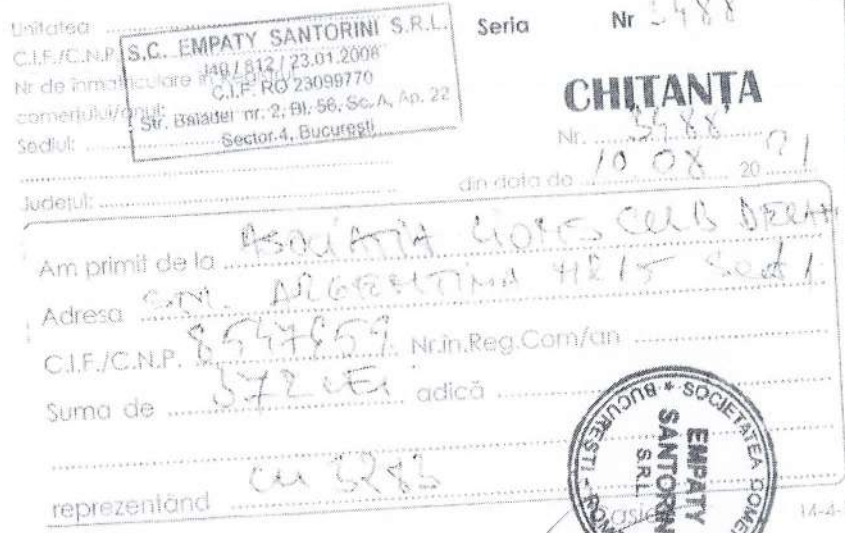 Unitatea
C.I.F./C.N.P.
Nr de înmatriculare în Registrul
comerțului/anul:
Sediul:
Județul:
S.C. EMPATY SANTORINI S.R.L.
J40 / 812 / 23.01.2008
C.I.F. RO 23099770
Str. Baladei nr. 2, Bl. 56, Sc. A, Ap. 22
Sector 4, București
Seria Nr 3488
CHITANȚA
Nr. 3488
din data de 10 08 20 21
Am primit de la ASOCIATIA LIONS CLUB
Adresa STR. ARGENTINA NR 15 Sect 1
C.I.F./C.N.P. Nr.în.Reg.Com/an
Suma de 372 LEI adică
reprezentând cu 3283
Casier
SOCIETATEA COMERCIALĂ * BUCURESTI - ROMANIA
EMPATY
SANTORINI
S.R.L.
14-4-